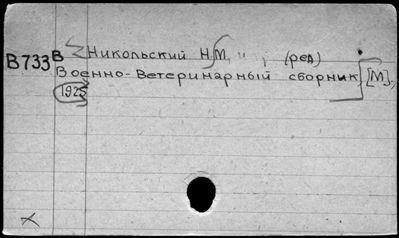 В733 В Никольский Н.М. " , (ред)
Военно-Ветеринарный сборник. [М].,
1925